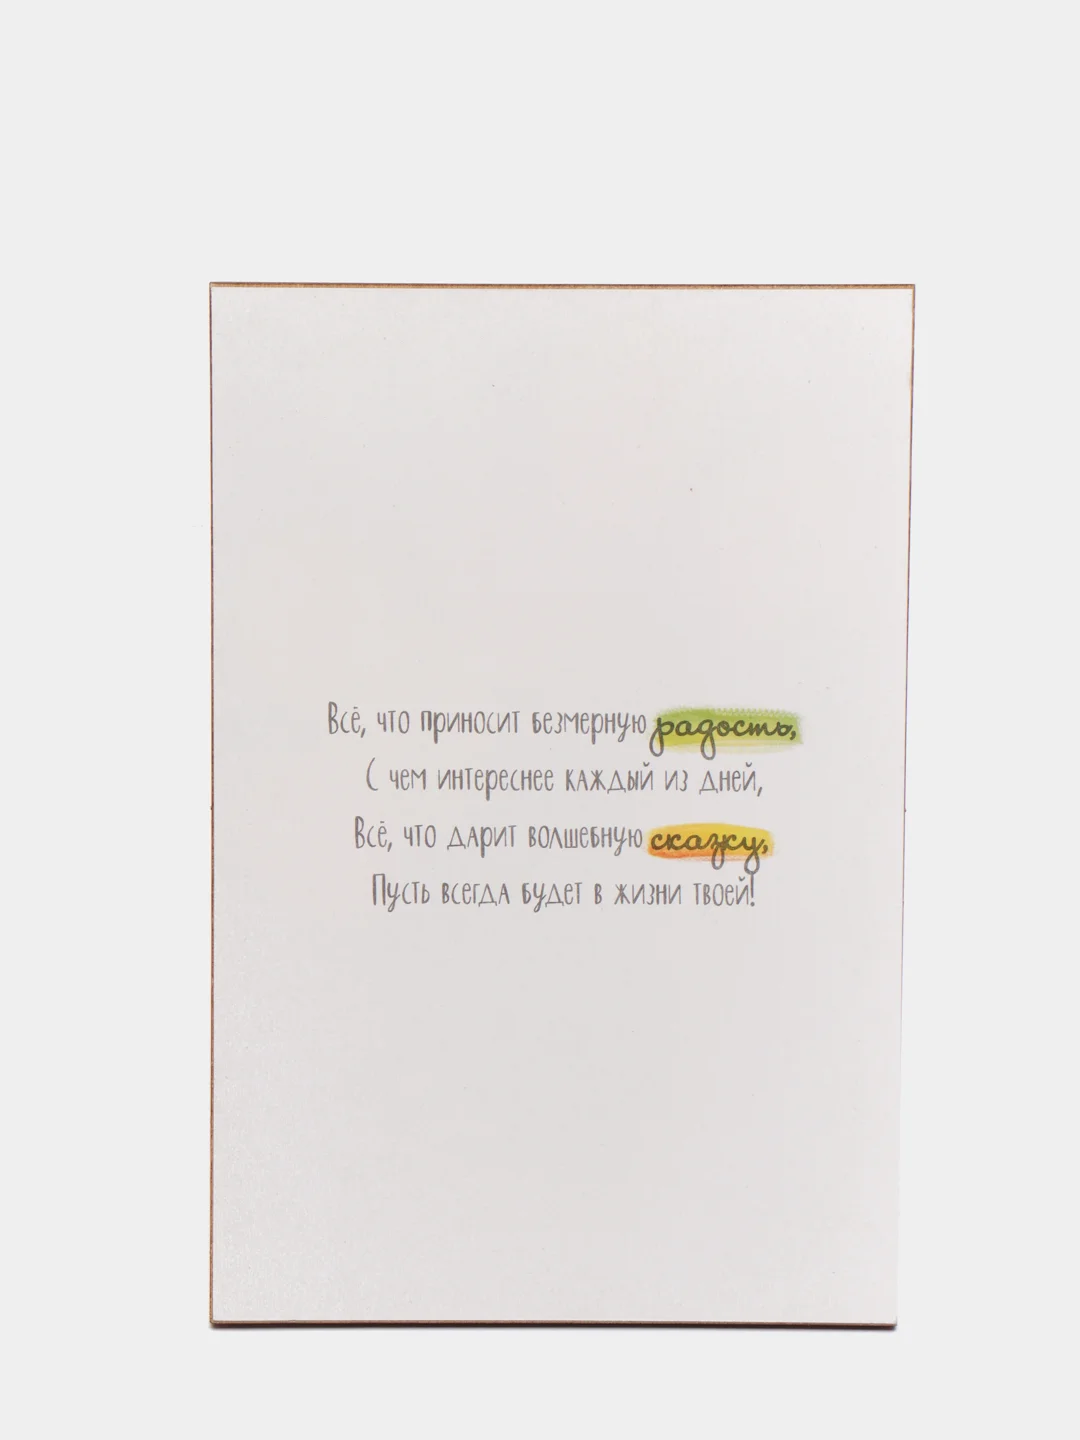 Всё, что приносит безмерную радость,
С чем интереснее каждый из дней,
Всё, что дарит волшебную сказку,
Пусть всегда будет в жизни твоей!